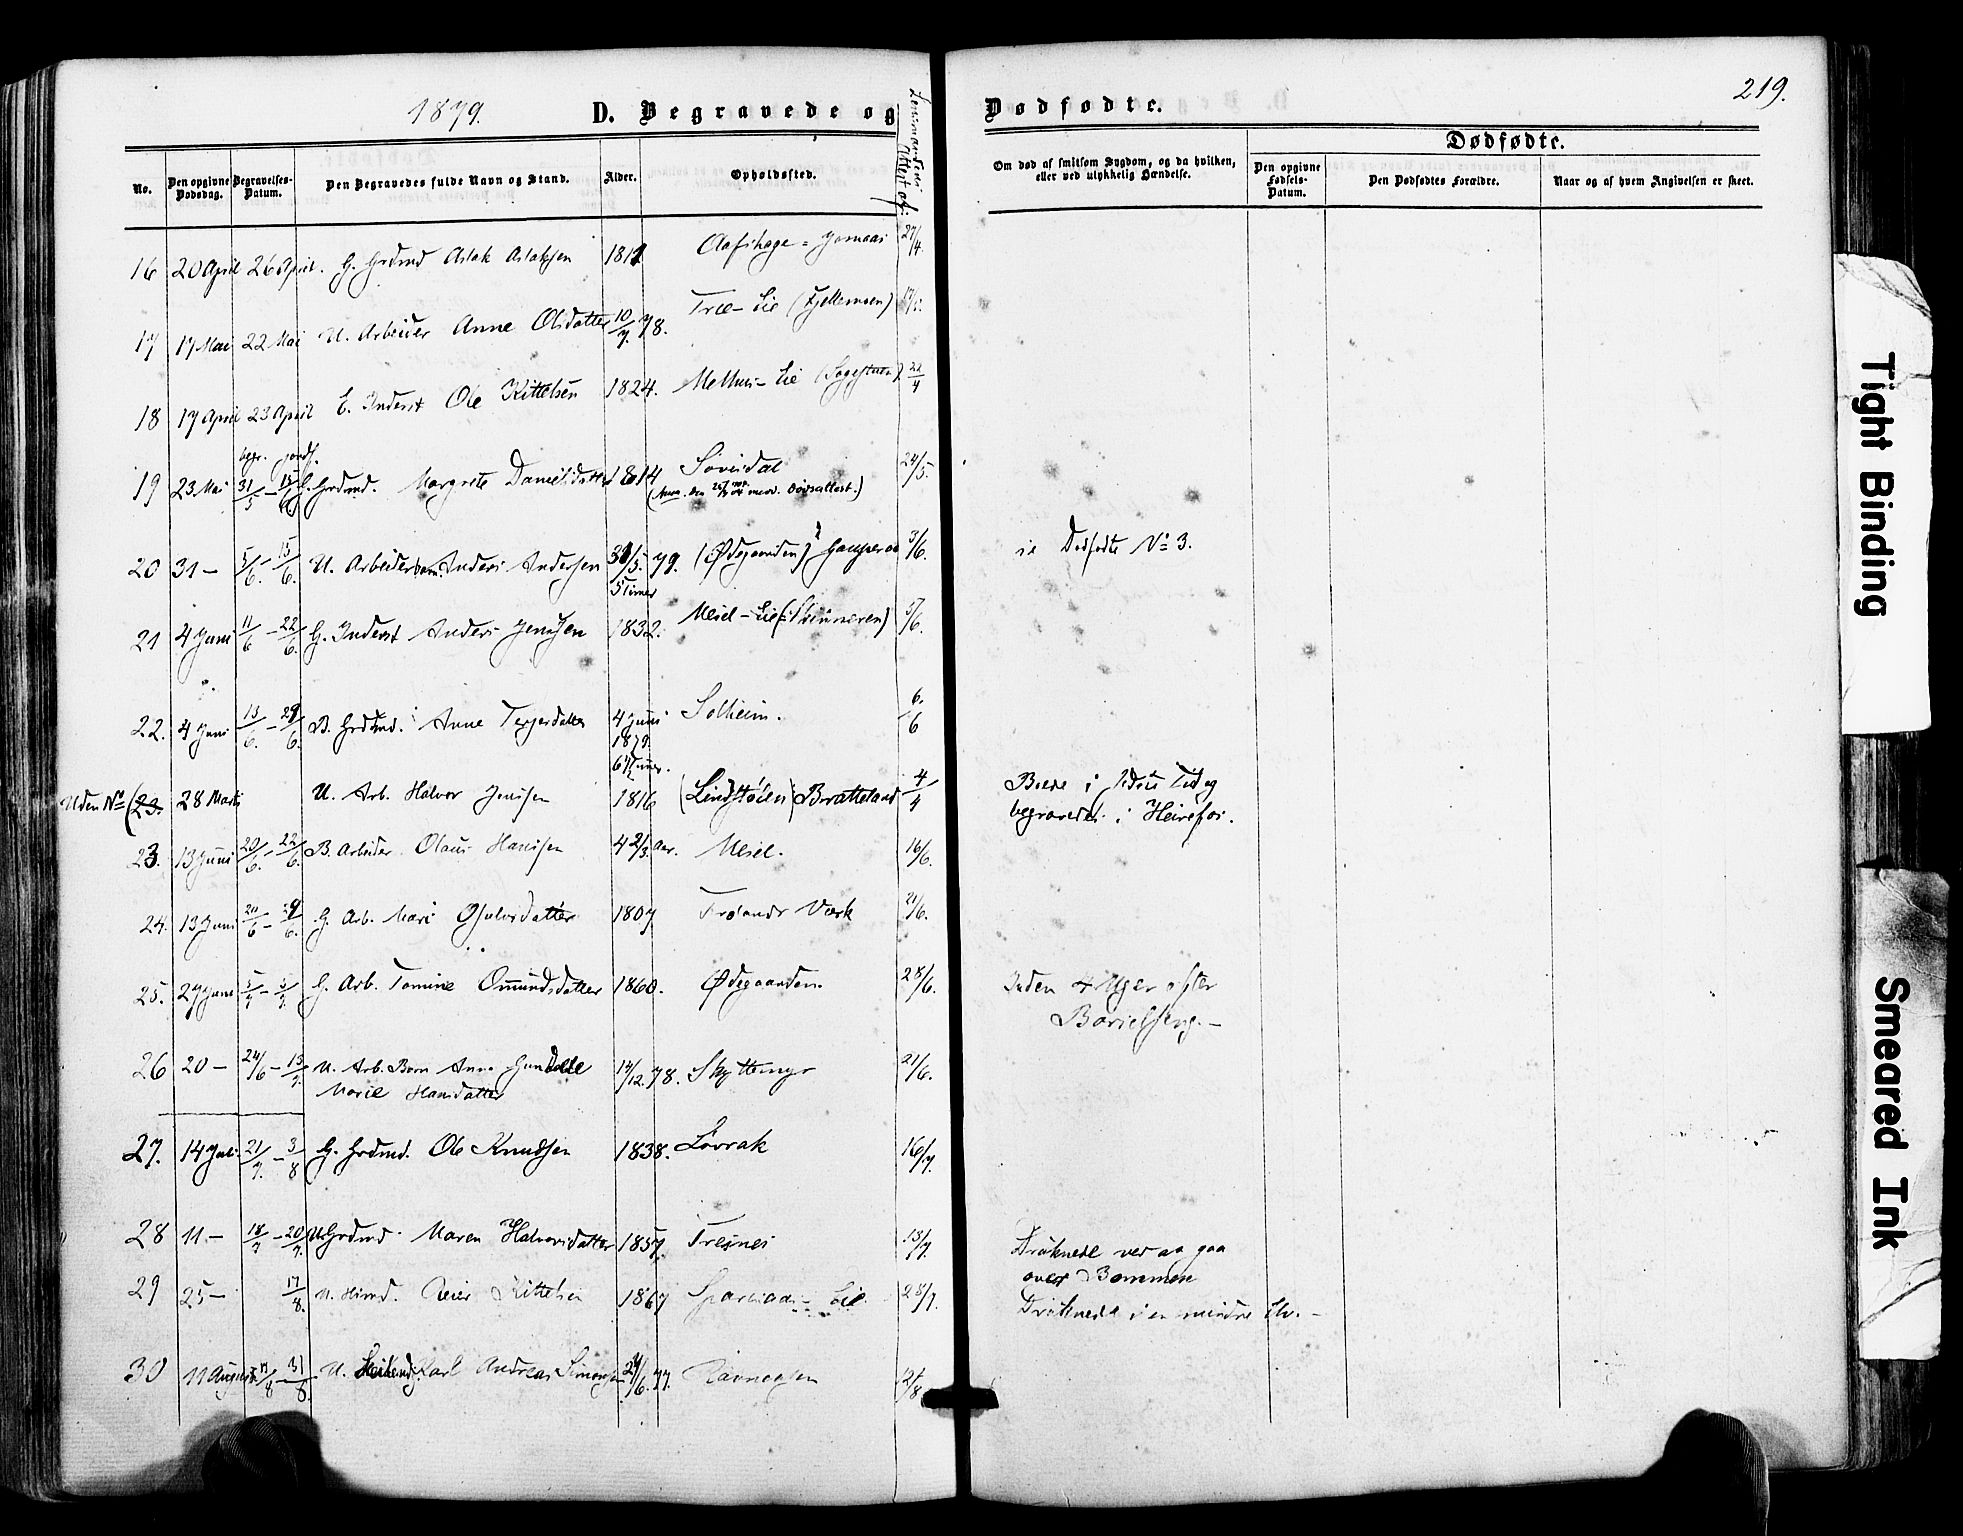 1879. D. Begravede og Dødfødte. 219.
Lensmandens Attest af:
No. Den opgivne Dødsdag. Begravelses-Datum. Den Begravedes fulde Navn og Stand. Alder. Opholdssted.
Om død af smitsom Sygdom, og da hvilken, eller ved ulykkelig Hændelse.
Dødfødte.
Den opgivne Fødsels-Datum. Den Dødfødtes Forældre. Naar og af hvem Angivelsen er skeet.
16 20 April 26 April. G. Grdmd Aslak Aslaksen 1811 27/4.
17 17 Mai 22 Mai U. Arbeider Anne Olsdatter 10/7. 78. Træ-Lie (Fjellemoen)
18 17 April 23 April E. Inderst Ole Kittelsen 1824. Melhus-Lie (Sagestuen) 22/4
begr. jordf.
19 23 Mai 31/5 - 15/6 G. Grdmd. Margrete Danielsdatter 1814 24/5.
20 31 - 5/6. - 15/6. U. Arbeiderbarn Anders Andersen 31/5. 79. (Ødegaarden) 3/6. se Dødfødte No 3.
5 Timer
21 4 Juni 11/6 - 22/6. G. Inderst Anders Jensen 1832. 5/6.
22. 4 Juni 13/6. - 29/6. B. Grdmd. Anne Terjesdatter 4 Juni Solheim. 6/6
1879.
Uden No (23. 28 Marts U. Arb. Halvor Jensen 1816 Bratteland 4/4
begravedes i Heirefos.
23. 13 Juni 20/6. - 22/6. B. Arbeider. Olaus Hansen 4 2/3. Aar. 16/6.
24. 13 Juni 20/6 - 29/6. G. Arb. Mari 1807 Frolands Værk 21/6.
25. 27 Juni 5/7 - G. Arb. Tomine Omundsdatter 1860. Ødegaarden. 28/6. Inden 4 Uger efter
Barselseng. -
26 20 - 24/6 - 13/7. U. Arb. Barn Anne 14/12. 78. Skyttemyr 21/6.
Marie Hansdatter
27. 14 Juli 21/7. - 3/8 G. Grdmd. Ole Knudsen 1838. Løvrak 16/7.
28 11. - 18/7 - 20/7. U. Grdmd. Maren Halvorsdatter 1857. Fresnes 13/7. Druknede ved at gaa
over Bommen
29 25 - 17/8. Reier Kittelsen 1867 28/7. Druknede i en mindre Elv. -
30 11 August 17/8 - 31/8. U. Karl Andreas Simonsen 24/6. 77. Ravnaasen
Tight Binding
Smeared Ink